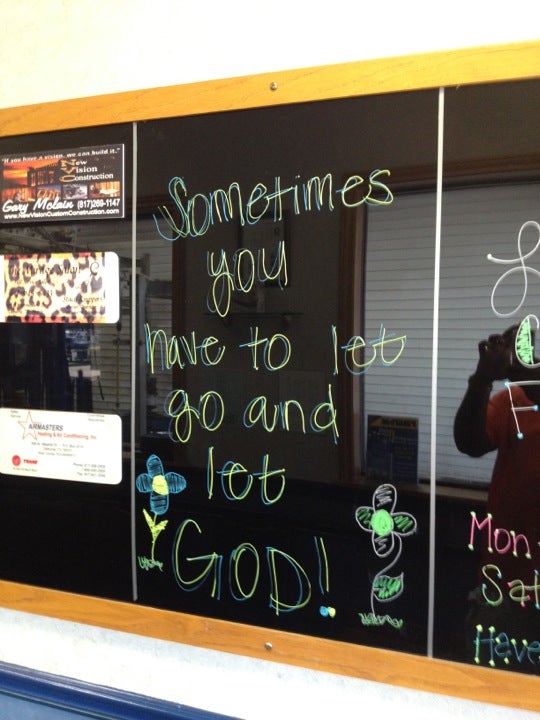 "If you have a vision, we can build it."
New
Vision
Construction
Gary Mclain (817)269-1147
www.NewVisionCustomConstruction.com
AIRMASTERS
Heating & Air Conditioning, Inc.
TRANE
Sometimes
you
have to let
go and
let
GOD!
Mon
Sat
Have